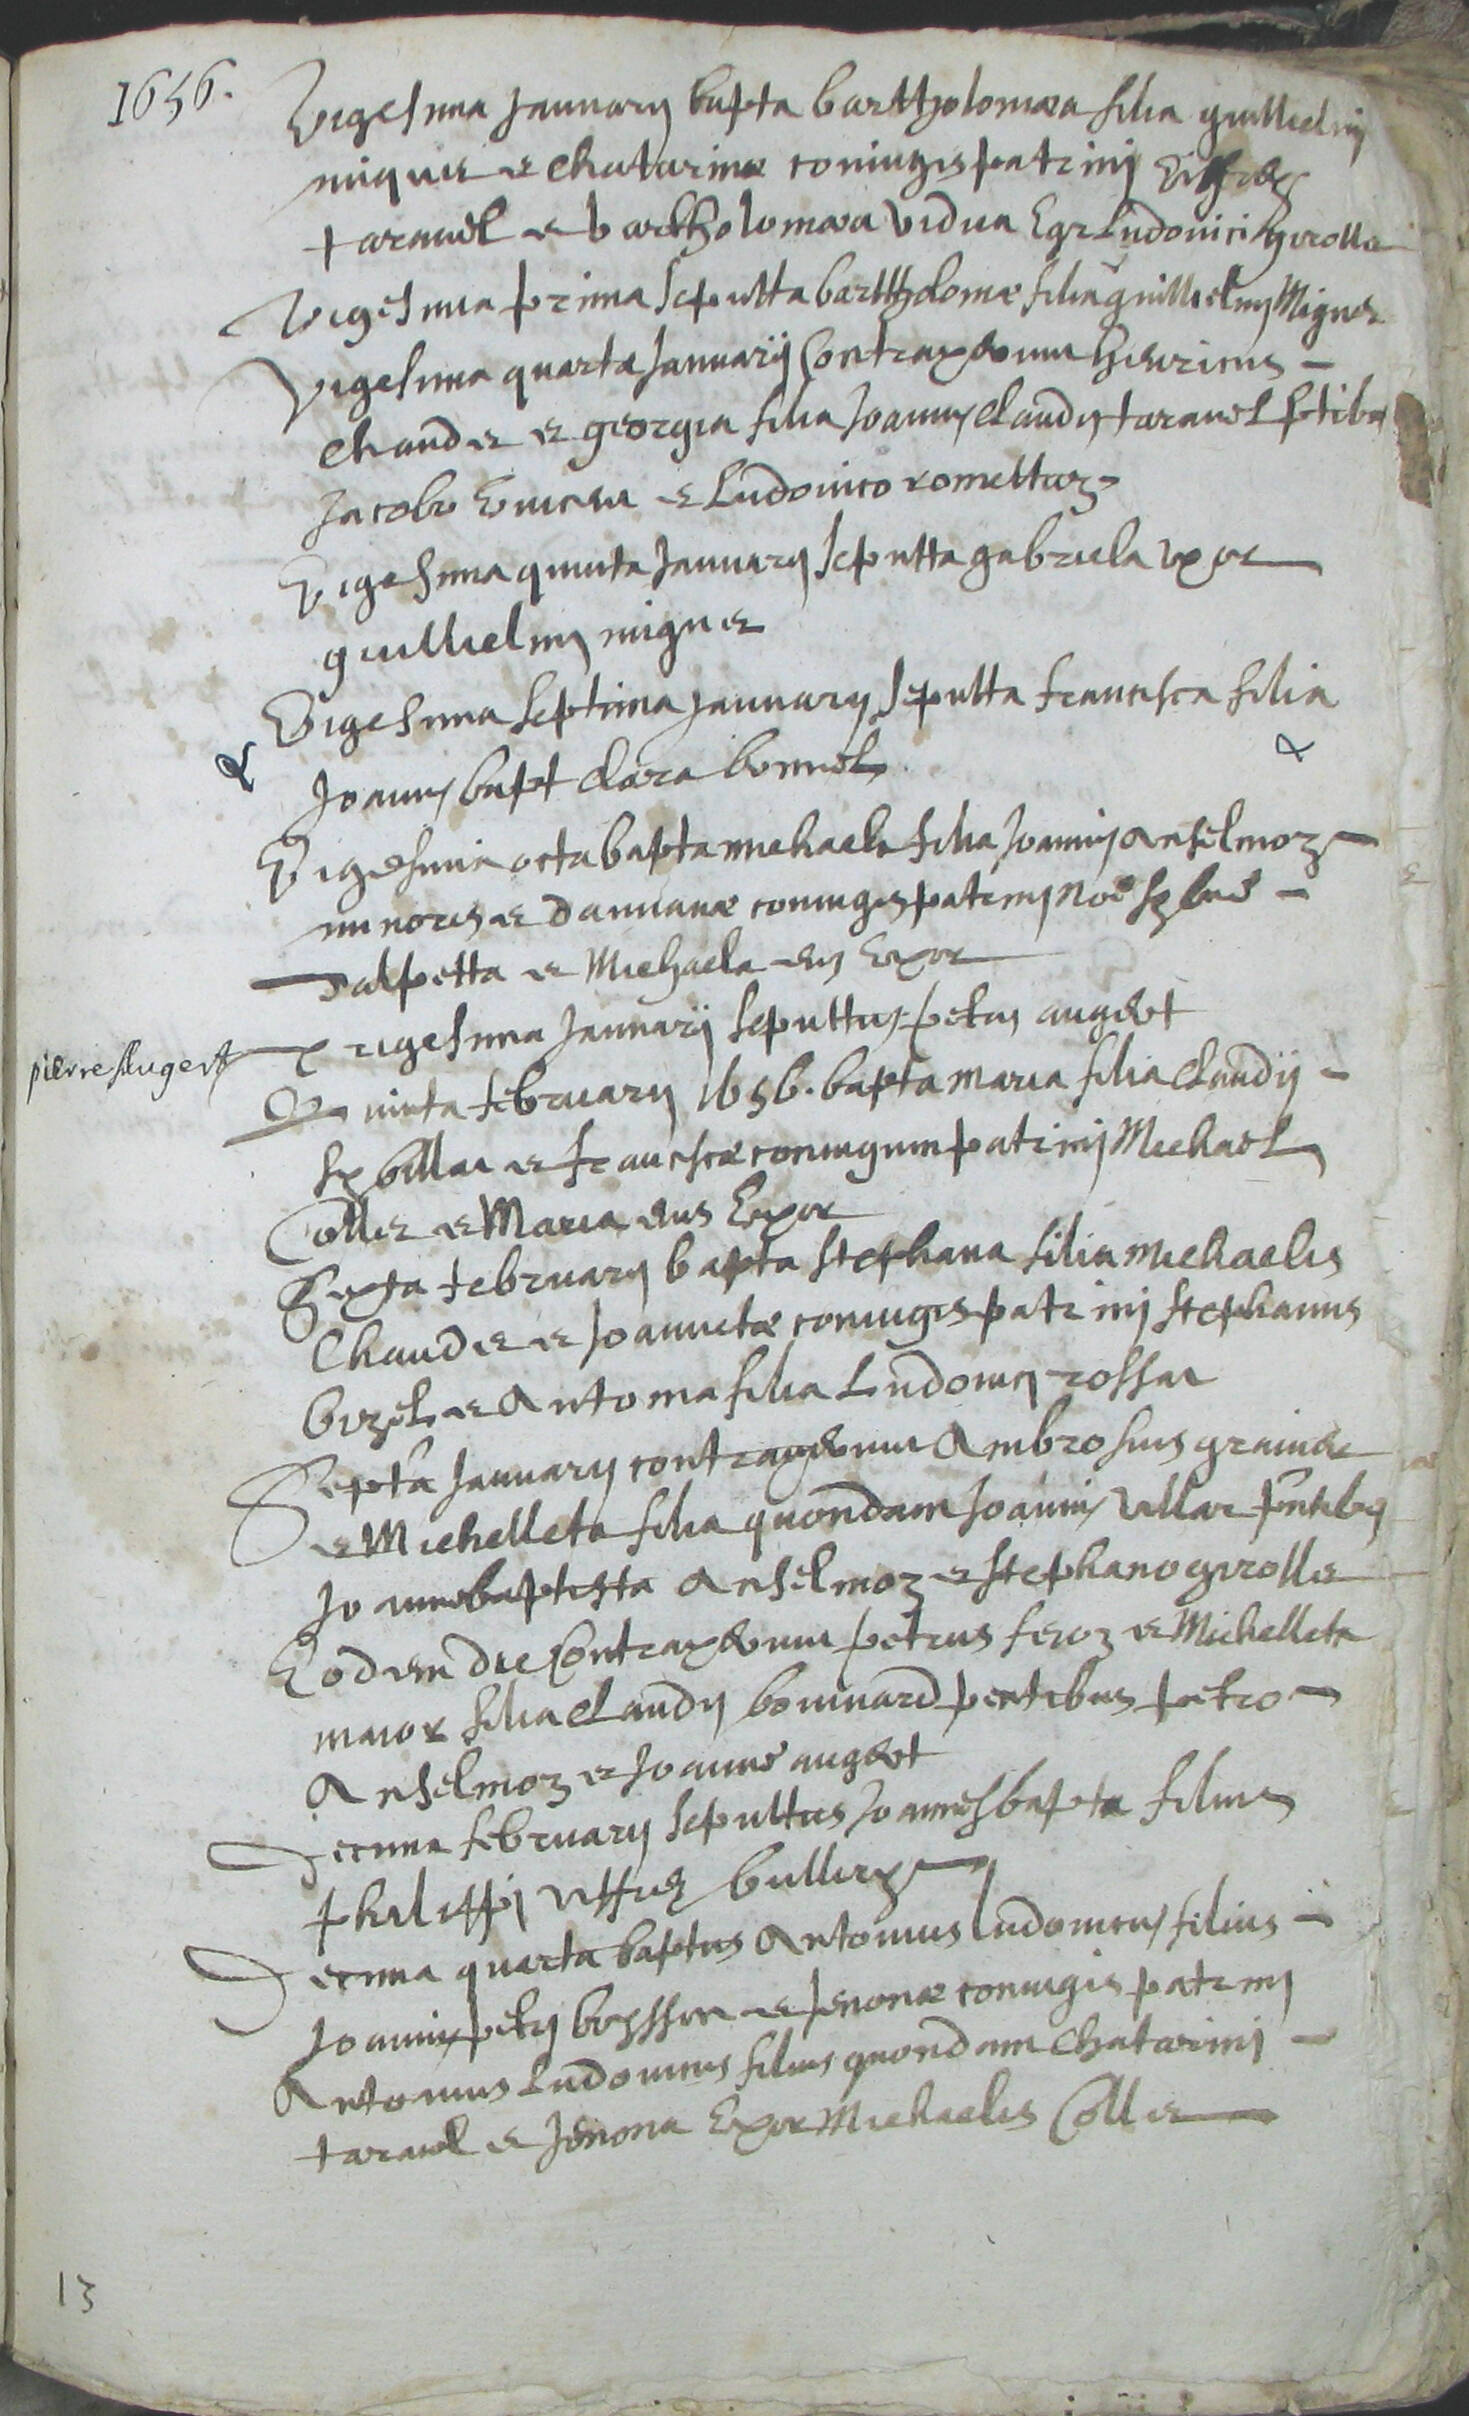 1656.
Vigesima Januarij bapta barttholomæa filia guillielmj
miquet et Chatarinæ coniugis patrinj
taravel et barttholomæa vidua Egr Ludovici gerolle
Vigesima prima sepultta barttholomæ filia guillielmj Miguet
Vigesima quarta Januarij Contraxerunt henricus –
Chaudet et georgia filia Joannis Claudij taravel ptibus
Jacobo et Ludovico romettaz
Vigesima quinta Januarij sepultta gabriela uxor
guillielmj miguet
Vigesima septima Januarij sepultta francisca filia
Joannis bapt Clara bonnel
Vigesima octa bapta michaela filia Joannis Anselmoz
minoris et damianæ coniugis patrinj Noe
dalpetta et Michaela eius Uxor
pierre Augert
Trigesima Januarij sepulttus petrus augert
Quinta februarij 1656. bapta maria filia Claudij –
Sybillat et franciscæ coniugum patrinj Michael
Collet et Maria eius Uxor
Sexta februarij bapta stephana filia michaelis
Chaudet et Joannetæ coniugis patrinj stephanus
bizel et Antonia filia Ludovicj rossat
Septa Januarij contraxerunt Ambrosius
et Michelleta filia quondam Joannis Villar pntibus
Joannebaptista Anselmoz et stephano gerolle
Eodem die Contraxerunt petrus feroz et Michelleta
maior filia Claudij bonnard pentibus petro
Anselmoz et Joanne augert
Decima februarij sepulttus Joannesbapta filius
philippj
Decima quarta baptus Antonius ludovicus filius –
Joannis petrj boysson et Jenonæ coniugis patrinj
Antonius Ludovicus filius quondam Chatarinj –
taravel et Jenona Uxor Michaelis Collet
13